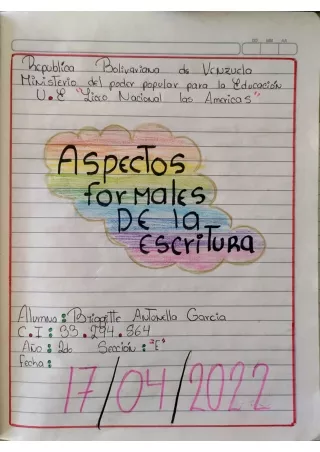 Republica Bolivariana de Venzuela
Ministerio del poder popular para la Educación
U.E "Liceo Nacional las Americas"
Aspectos
formales
De la
escritura
Alumna: Briggitte Antonella Garcia
C.I: 33.294.864
Año: 2do Sección: "E"
Fecha:
17/04/2022